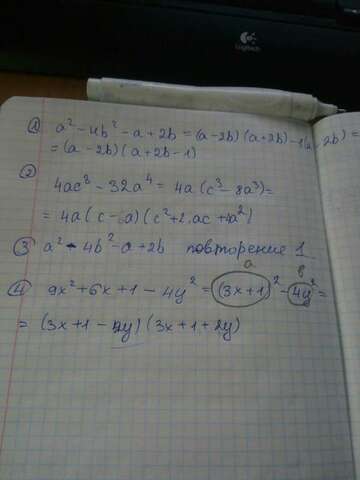 Logitech
① a² - 4b² - a + 2b = (a - 2b)(a + 2b) - 1(a - 2b) =
= (a - 2b)(a + 2b - 1)
② 4ac³ - 32a⁴ = 4a(c³ - 8a³) =
= 4a(c - 2a)(c² + 2ac + 4a²)
③ a² - 4b² - a + 2b повторение 1
a b
④ 9x² + 6x + 1 - 4y² = (3x + 1)² - 4y² =
= (3x + 1 - 2y)(3x + 1 + 2y)